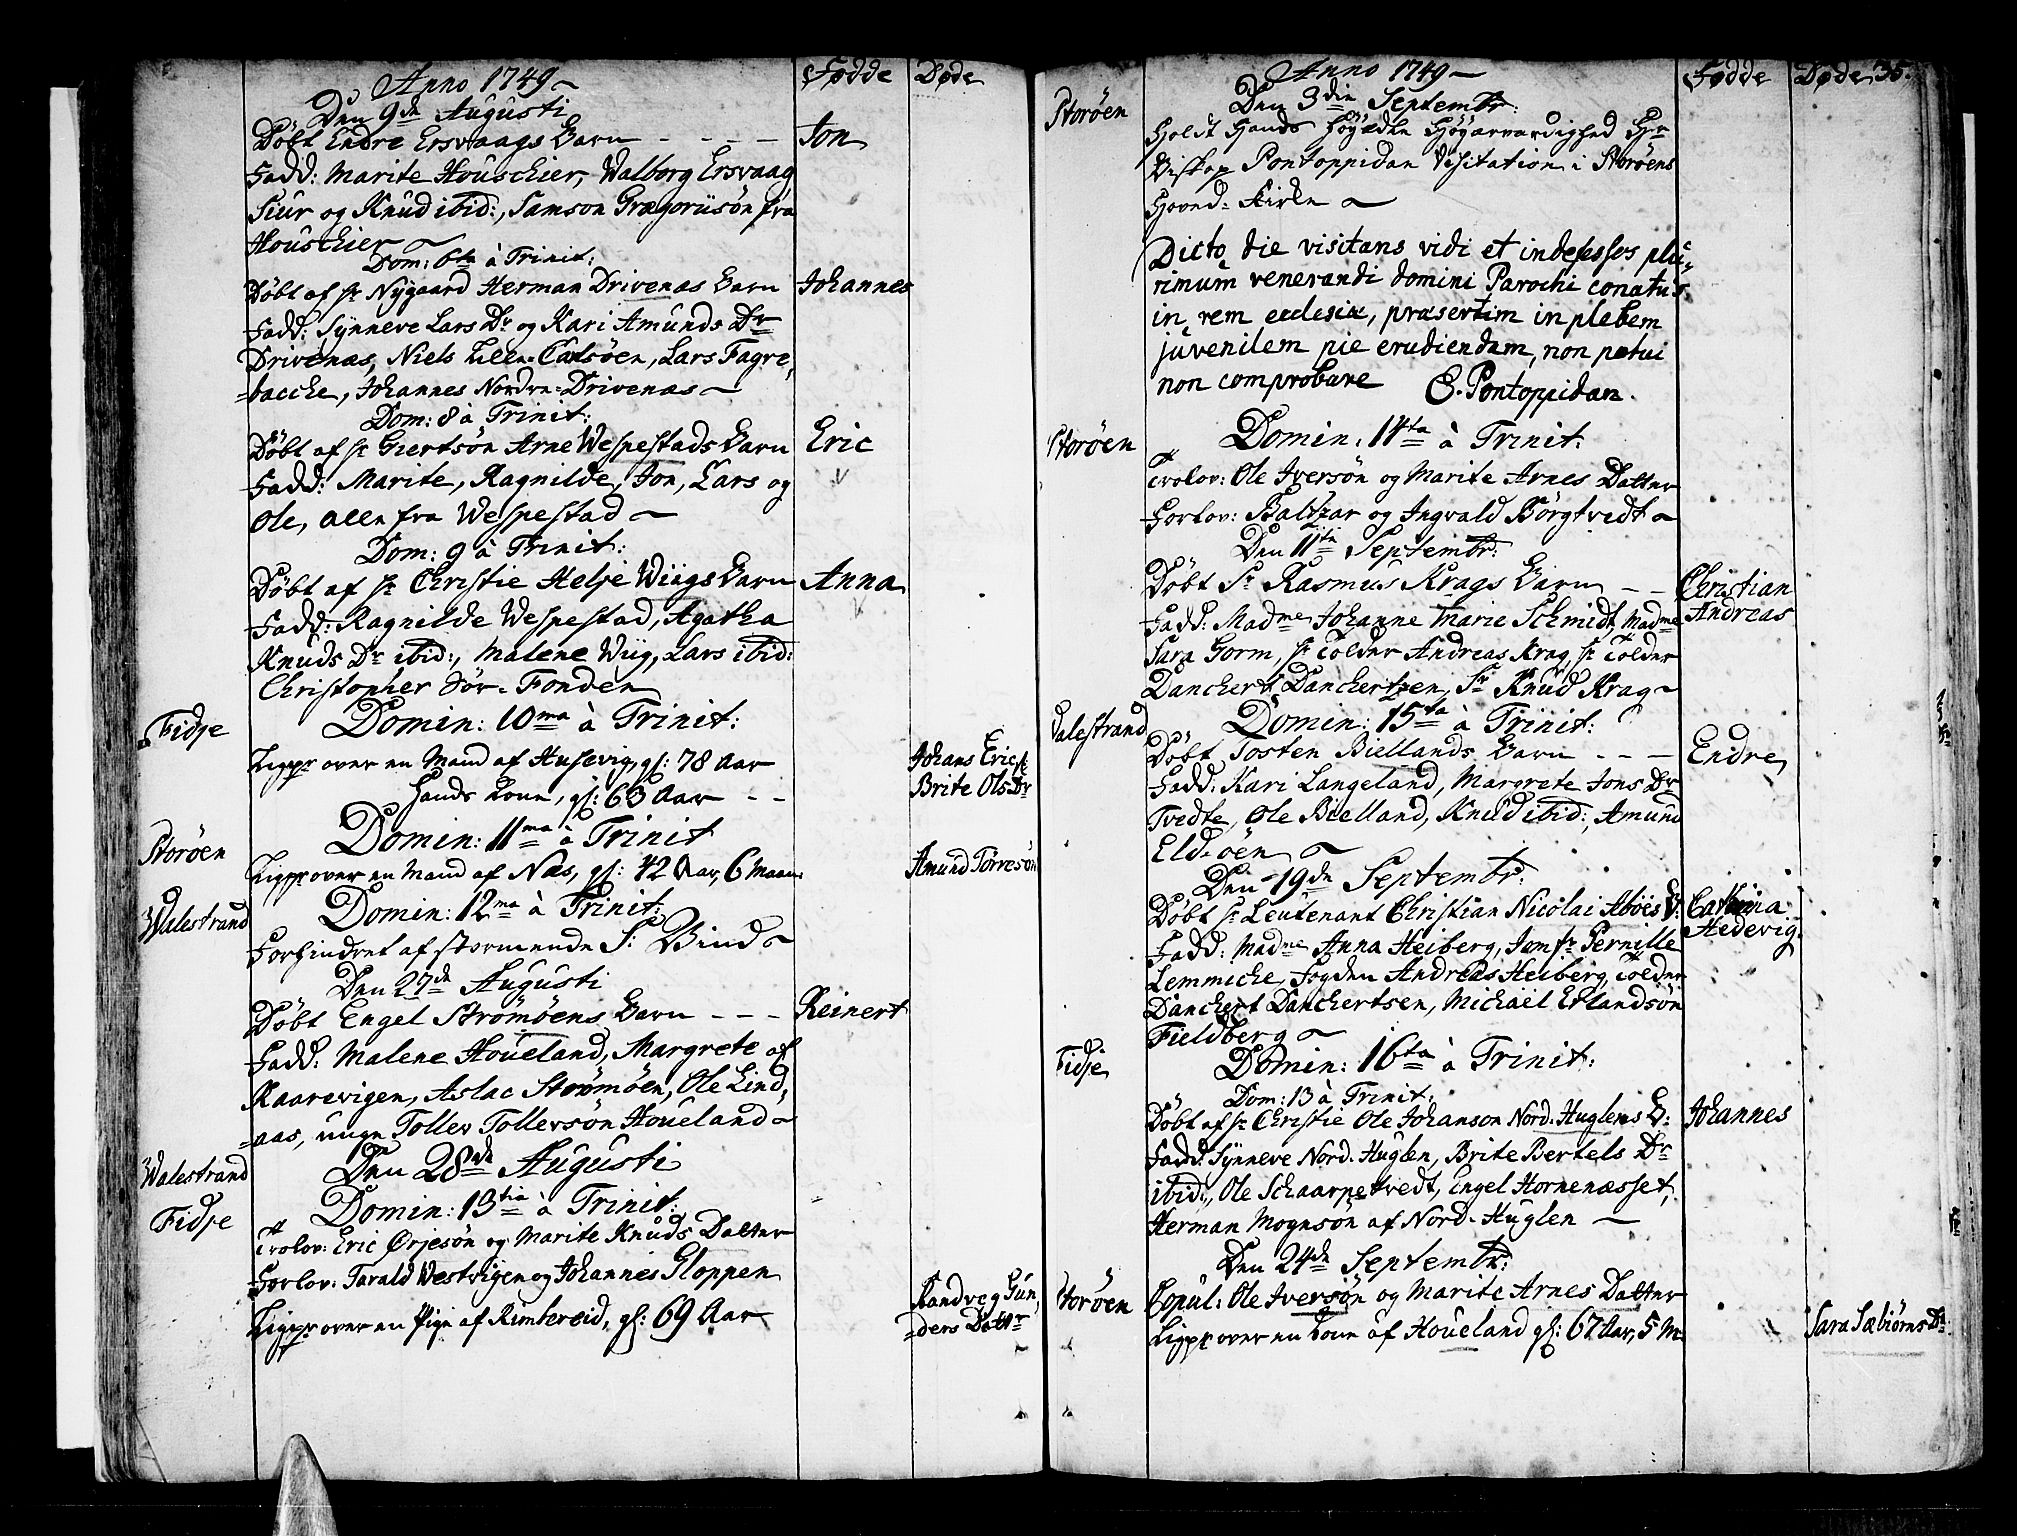 Anno 1749
Fødde
Døde
Den 9de Augusti
Döbt Endre Ersvaags Barn - - - -
Jon
Fadd: Marite Houschier, Walborg Ersvaag
Siur og Knud ibid:, Samson Grægoriisön fra
Houschier
Dom: 6ta à Trinit:
Döbt af Hr Nygaard Herman Drivenæs Barn
Johannes
Fadd: Synneve Lars Dr og Kari Amunds Dr
Drivenæs, Niels Lille-Carlsöen, Lars Fagre,
=bacche, Johannes Nordre-Drivenæs
Dom: 8 à Trinit:
Döbt af Hr Giertsön Arne Wespestads Barn
Eric
Fadd: Marite, Ragnilde, Jon, Lars og
Ole, alle fra Wespestad
Dom: 9 à Trinit:
Döbt af Hr Christie Helje Wiigs Barn
Anna
Fadd: Ragnilde Wespestad, Agatha
Knuds Dr ibid:, Malene Wiig, Lars ibid:
Christopher Sör-Fonden
Fidje
Domin: 10ma à Trinit:
Ligpr over en Mand af Husevig, gl: 78 Aar
Johans Erics:
Hands Kone, gl: 63 Aar - -
Brite Ols Dr
Storöen
Domin: 11ma à Trinit
Ligpr over en Mand af Næs, gl: 42 Aar, 6 Maan:
Amund Törresön
Walestrand
Domin: 12ma à Trinit:
Forhindret af stormende S: Vind
Den 27de Augusti
Döbt Engel Strömöens Barn - - -
Reinert
Fadd: Malene Houeland, Margrete af
Kaarevigen, Aslac Strömöen, Ole Lind,
=aas, unge Toller Tollersön Houeland
Walestrand
Den 28de Augusti
Fidje
Domin: 13tia à Trinit:
Trolov: Eric Ørjesön og Marite Knuds Datter
Forlov: Tarald Westvigen og Johannes Gloppen
Ligpr over en Pige af Rimbereid, gl: 69 Aar
Randveg Gun,
=ders Dattr
Anno 1749
Fødde
Døde
35.
Storöen
Den 3die Septembr:
Holdt Hands Höyædle Höyærværdighed Hr
Biskop Pontoppidan Visitation i Storöens
Hoved-Kirke
Dicto die visitans vidi et indefessos plu,
rimum venerandi domini Parochi conatus
in rem ecclesiæ, præsertim in plebem
juvenilem pie erudiendam, non potui
non comprobare
E. Pontoppidan
Storöen
Domin: 14ta à Trinit:
Trolov: Ole Iversön og Marite Arnes Datter
Forlov: Baltzar og Ingvald Börgtvedt
Den 11te Septembr:
Döbt Sr Rasmus Krags Barn - -
Christian
Andreas
Fadd: Madme Johanne Marie Schmidt, Madme
Sara Gorm, Hr Tolder Andreas Krag, Hr Tolder
Danchert Danchertzen, Sr Knud Krag
Valestrand
Domin: 15ta à Trinit:
Döbt Tosten Biellands Barn - - -
Endre
Fadd: Kari Langeland, Margrete Jons Dr
Tvedte, Ole Bielland, Knud ibid:, Amund
Eld-öen
Den 19de Septembr:
Döbt Hr Leutenant Christian Nicolai Aböes B:
Cathrina
Hedevig.
Fadd: Madme Anna Heiberg, Jomfr Pernille
Lemmiche, Fogden Andreas Heiberg, Tolder
Danchert Danchertsen, Michaël Erlandsön
Fieldberg
Fidje
Domin: 16ta à Trinit:
Dom: 13 à Trinit:
Döbt af Hr Christie Ole Johanson Nord-Huglens B:
Johannes
Fadd: Synneve Nord-Huglen, Brite Bertels Dr
ibid:, Ole Schaarpetvedt, Engel Hornenæsset,
Herman Mognsön af Nord-Huglen
Den 24de Septembr:
Storöen
Copul: Ole Iversön og Marite Arnes Datter
Ligpr over en Kone af Houeland gl: 67 Aar, 5 M
Sara Sæbiörns Dr